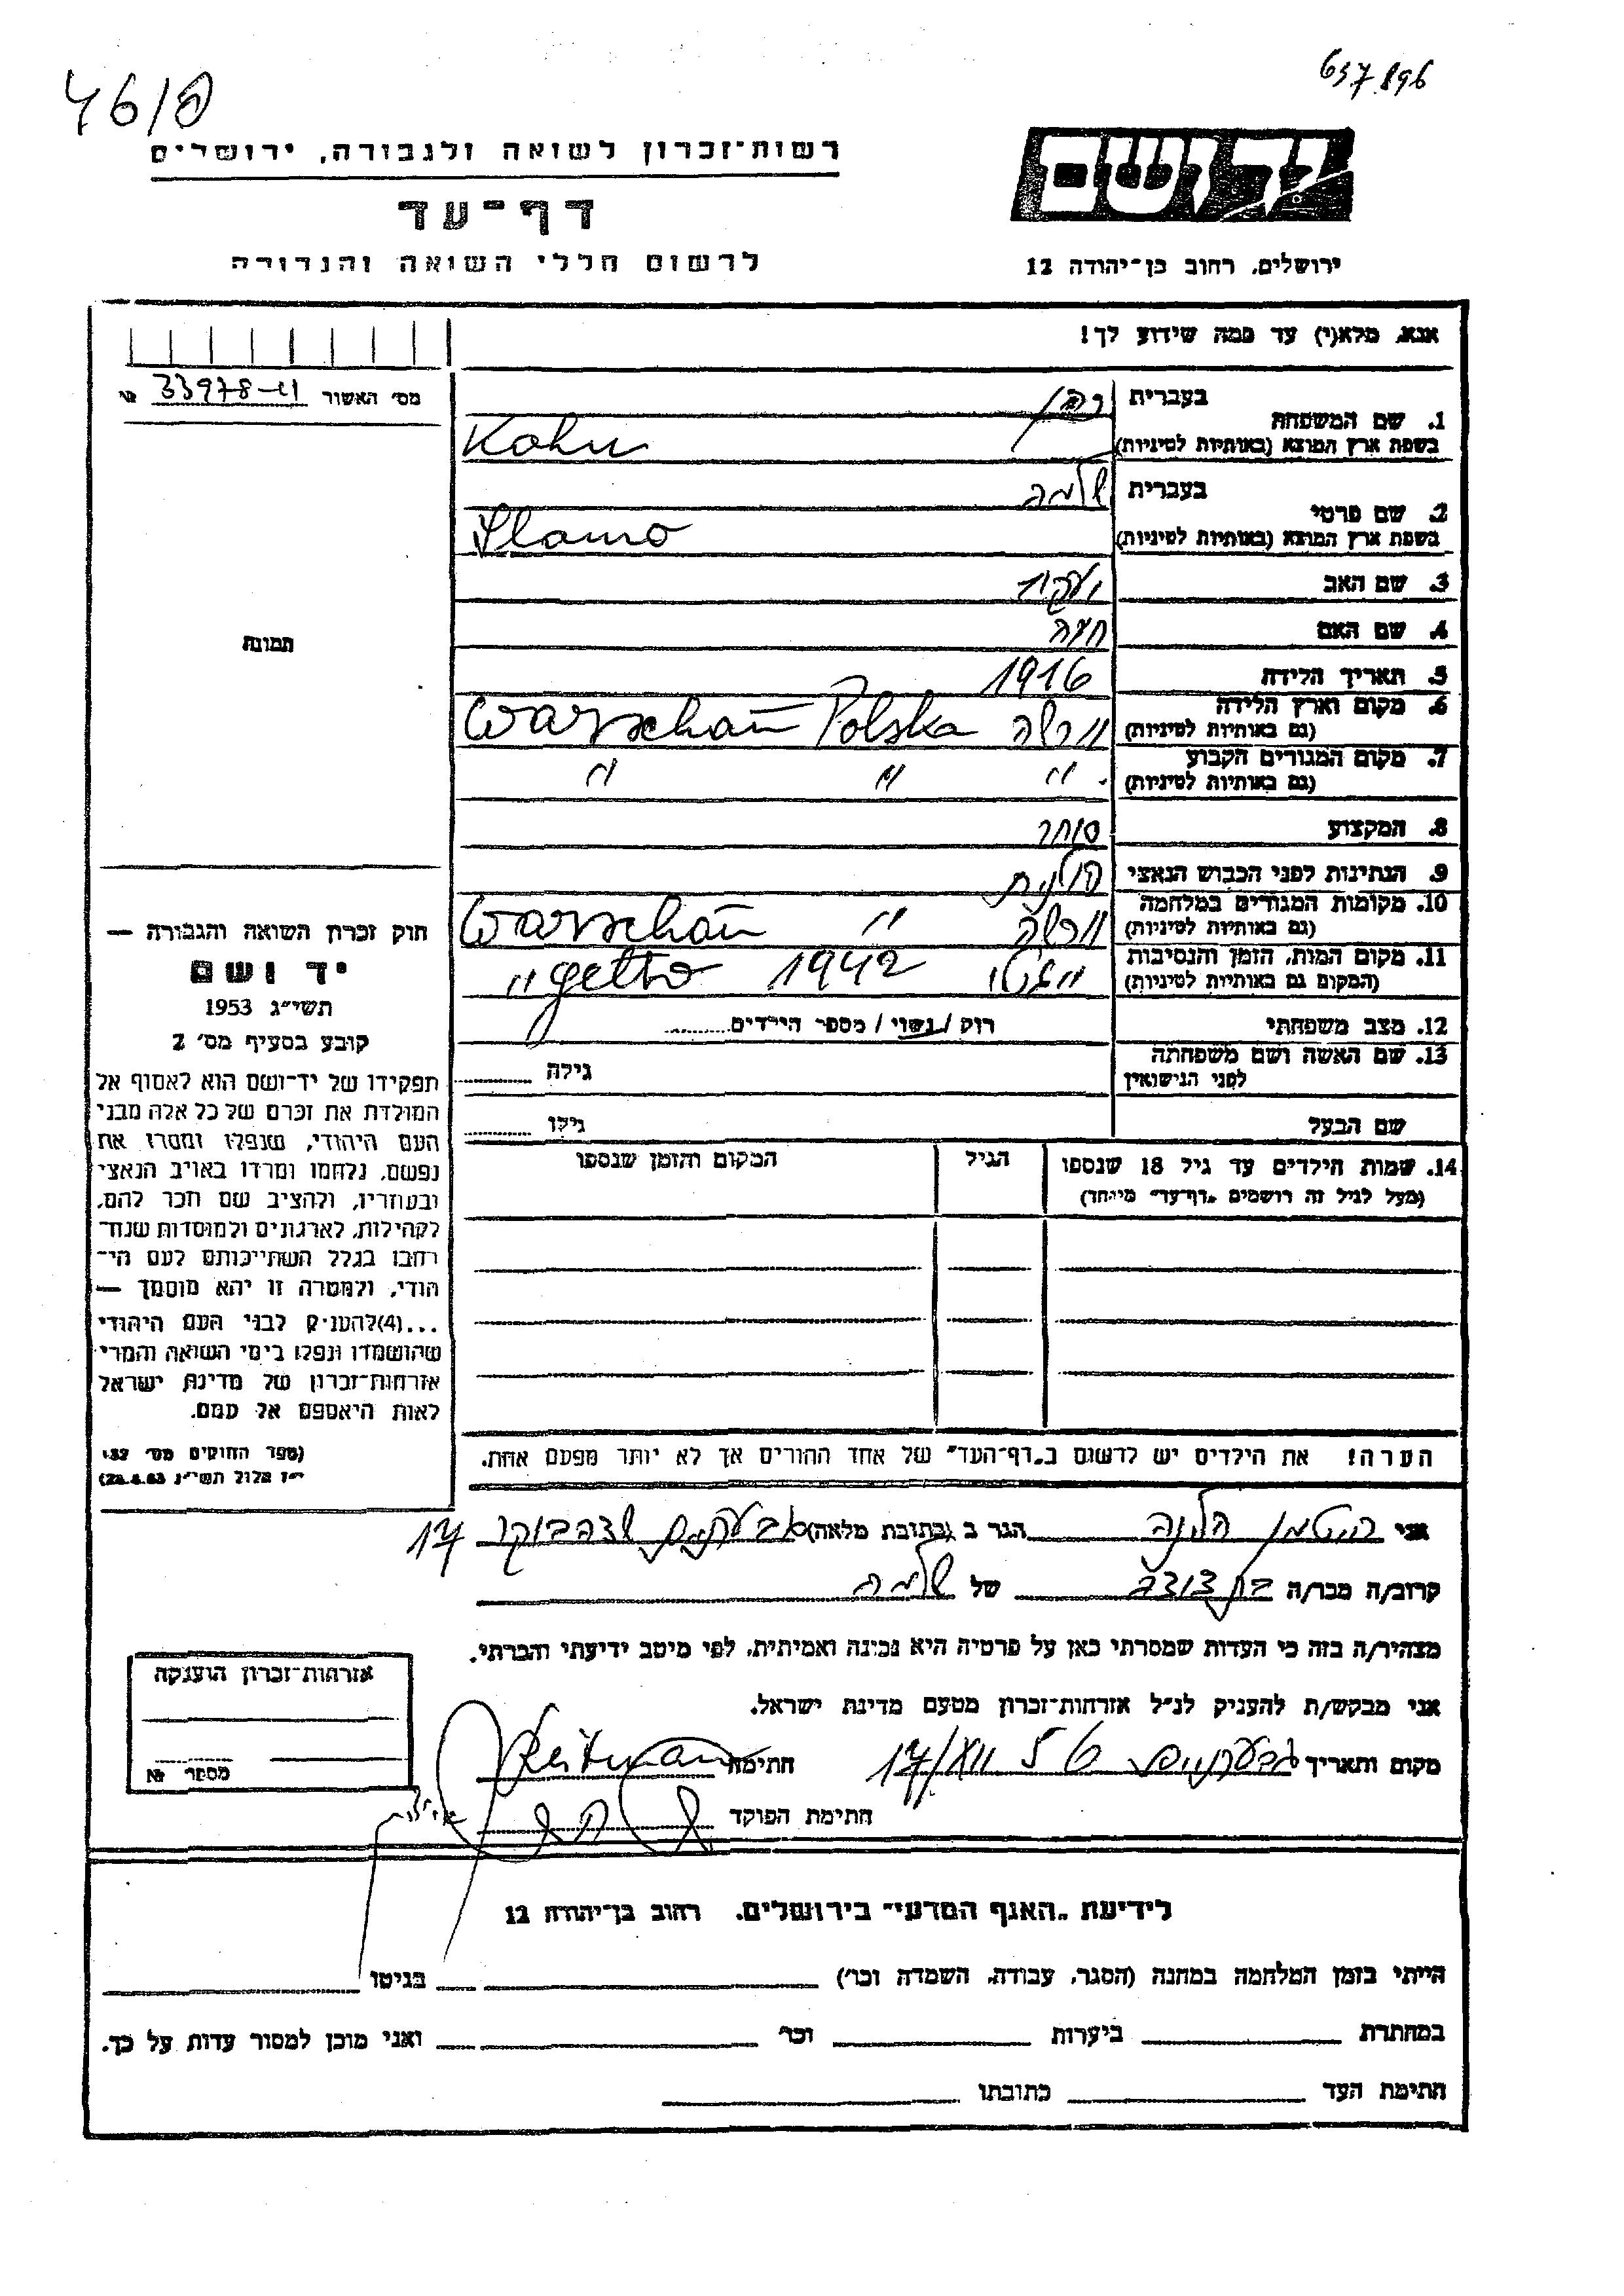 46/פ
637.896
רשות־זכרון לשואה ולגבורה, ירושלים
יד ושם
דף־עד
לרשום חללי השואה והגבורה
ירושלים, רחוב בן־יהודה 12
אנא, מלא(י) עד כמה שידוע לך!
מס׳ האשור 33978-11 №
בעברית כהן
1. שם המשפחה
בשפת ארץ המוצא (באותיות לטיניות) Kohn
בעברית שלמה
2. שם פרטי
בשפת ארץ המוצא (באותיות לטיניות) Slamo
3. שם האב יעקב
4. שם האם חנה
תמונה
5. תאריך הלידה 1916
6. מקום וארץ הלידה
(גם באותיות לטיניות) וורשה Warschau Polska
7. מקום המגורים הקבוע
(גם באותיות לטיניות) " " "
8. המקצוע סוחר
9. הנתינות לפני הכבוש הנאצי פולנית
10. מקומות המגורים במלחמה
(גם באותיות לטיניות) וורשה " Warschau
11. מקום המות, הזמן והנסיבות
(המקום גם באותיות לטיניות) " גטו 1942 " getto
12. מצב משפחתי רווק / נשוי / מספר הילדים
13. שם האשה ושם משפחתה
לפני הנישואין גילה
שם הבעל גילו
14. שמות הילדים עד גיל 18 שנספו הגיל המקום והזמן שנספו
(מעל לגיל זה רושמים „דף־עד״ מיוחד)
הערה! את הילדים יש לרשום ב„דף־העד״ של אחד ההורים אך לא יותר מפעם אחת.
חוק זכרון השואה והגבורה —
יד ושם
תשי״ג 1953
קובע בסעיף מס׳ 2
תפקידו של יד־ושם הוא לאסוף אל
המולדת את זכרם של כל אלה מבני
העם היהודי, שנפלו ומסרו את
נפשם, נלחמו ומרדו באויב הנאצי
ובעוזריו, ולהציב שם וזכר להם,
לקהילות, לארגונים ולמוסדות שנח־
רבו בגלל השתייכותם לעם הי־
הודי, ולמטרה זו יהא מוסמך —
...(4) להעניק לבני העם היהודי
שהושמדו ונפלו בימי השואה והמרי
אזרחות־זכרון של מדינת ישראל
לאות היאספם אל עמם.
(ספר החוקים מס׳ 132
י״ז אלול תשי״ג 28.8.53)
אני רייטמן הלינה הגר ב (כתובת מלאה) גבעתיים שדה בוקר 17
קרוב/ה מכר/ה בת דודה של שלמה
מצהיר/ה בזה כי העדות שמסרתי כאן על פרטיה היא נכונה ואמיתית, לפי מיטב ידיעתי והכרתי.
אני מבקש/ת להעניק לנ״ל אזרחות־זכרון מטעם מדינת ישראל.
מקום ותאריך גבעתיים 17/XII 56 חתימה Reitman
חתימת הפוקד
אזרחות־זכרון הוענקה
מספר №
לידיעת „האגף המדעי״ בירושלים, רחוב בן־יהודה 12
הייתי בזמן המלחמה במחנה (הסגר, עבודה, השמדה וכו׳) בגיטו
במחתרת ביערות וכו׳ ואני מוכן למסור עדות על כך.
חתימת העד כתובתו